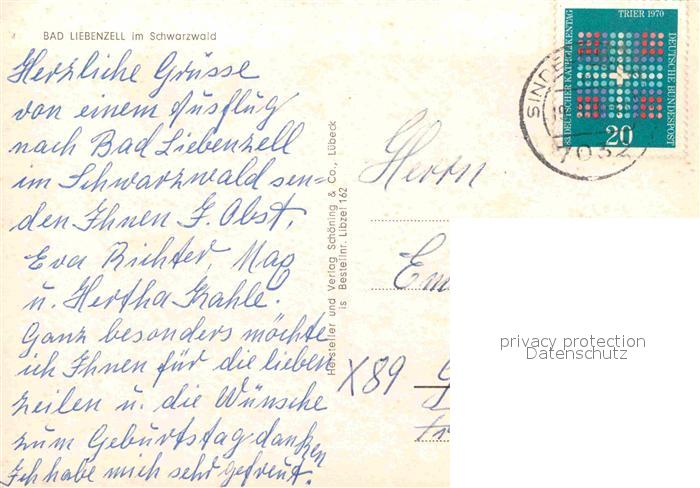 BAD LIEBENZELL im Schwarzwald
Herzliche Grüsse
von einem Ausflug
nach Bad Liebenzell
im Schwarzwald sen=
den Ihnen J. Obst,
Eva Richter, Mag
u. Hertha Krahle.
Ganz besonders möchte
ich Ihnen für die lieben
Zeilen u. die Wünsche
zum Geburtstag danken
Ich habe mich sehr gefreut.
Hersteller und Verlag Schöning & Co., Lübeck
is Bestellnr. Libzel 162
TRIER 1970
83. DEUTSCHER KATHOLIKENTAG
DEUTSCHE BUNDESPOST
20
SINDEL
7032
Herrn
Em
X89
privacy protection
Datenschutz